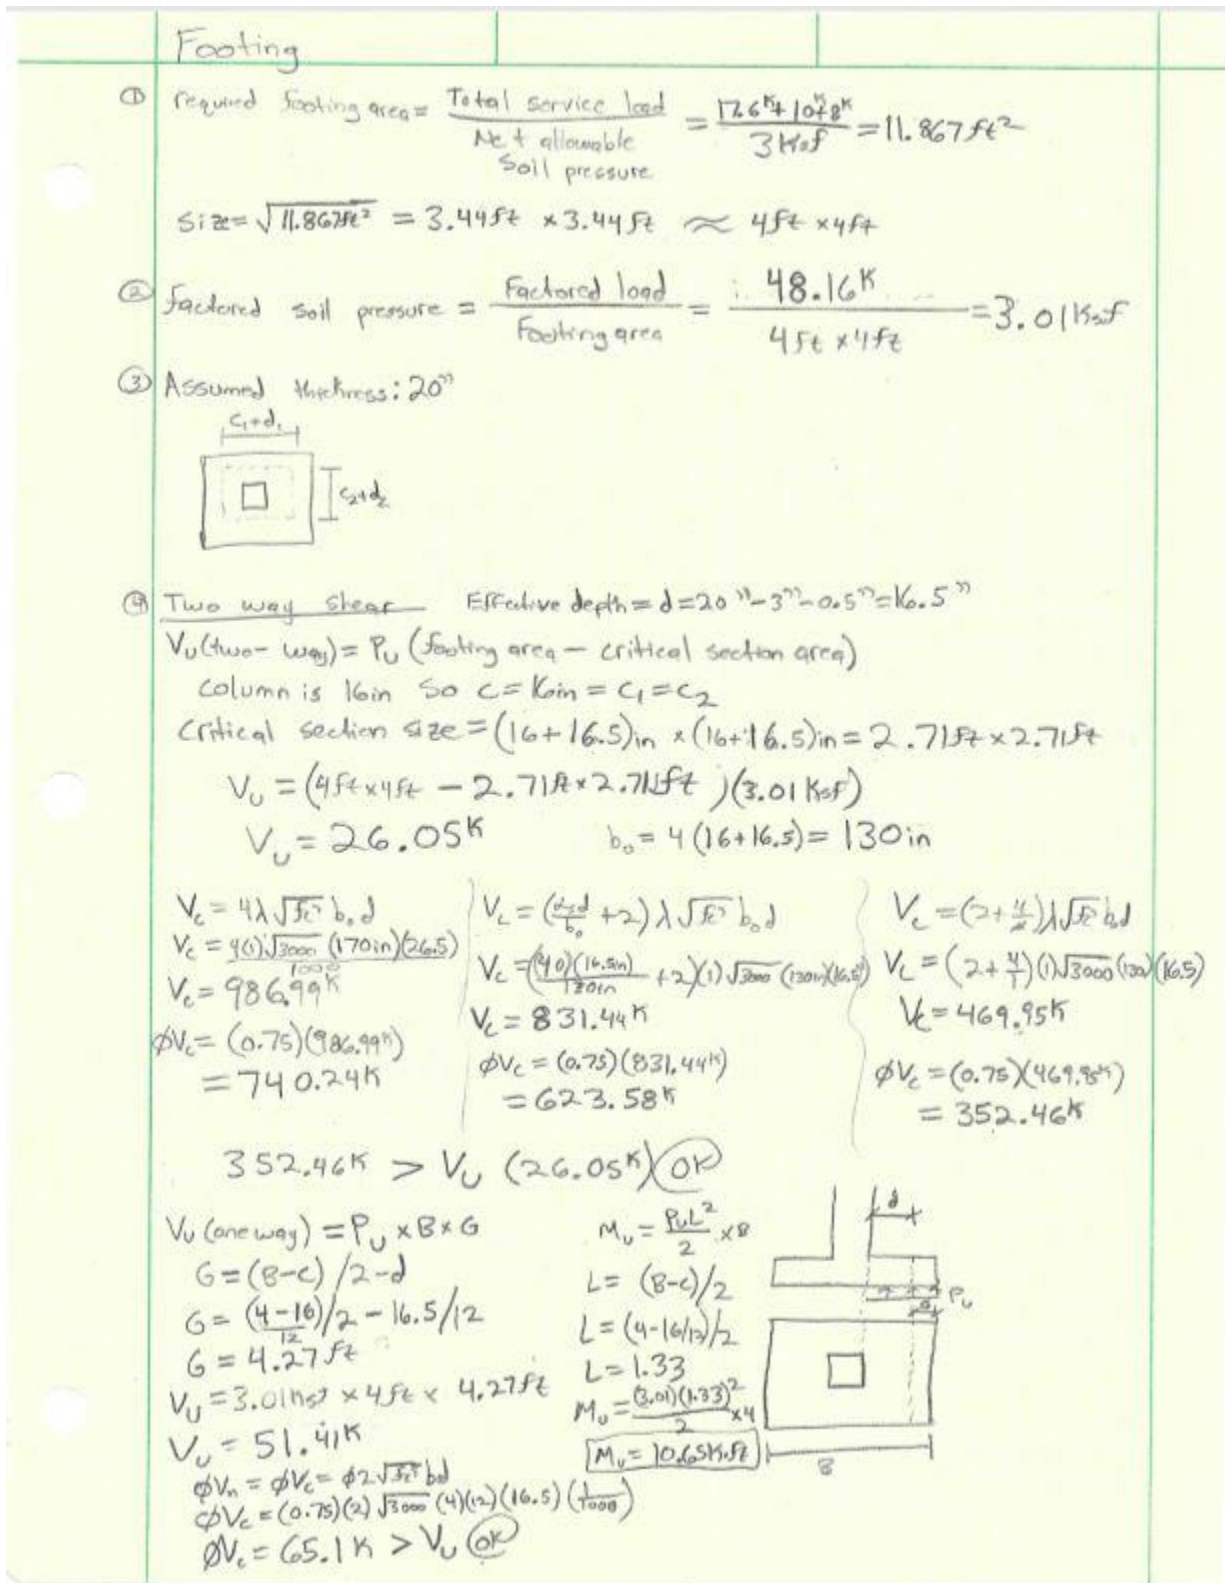 Footing
① required footing area = Total service load / Net allowable soil pressure = 17.6ᴷ + 10ᴷ + 8ᴷ / 3 Ksf = 11.867 ft²
size = √11.867ft² = 3.44ft × 3.44ft ≈ 4ft × 4ft
② factored soil pressure = Factored load / Footing area = 48.16ᴷ / 4ft × 4ft = 3.01 Ksf
③ Assumed thickness: 20"
c₁+d₁
c₂+d₂
④ Two way shear Effective depth = d = 20" - 3" - 0.5" = 16.5"
Vᵤ (two-way) = Pᵤ (footing area - critical section area)
column is 16in so c = 16in = c₁ = c₂
critical section size = (16+16.5)in × (16+16.5)in = 2.71ft × 2.71ft
Vᵤ = (4ft×4ft - 2.71ft×2.71ft)(3.01 Ksf)
Vᵤ = 26.05ᴷ b₀ = 4(16+16.5) = 130in
V_c = 4λ√fc' b₀d
V_c = 4(1)√3000 (170in)(26.5) / 1000
V_c = 986.99ᴷ
φV_c = (0.75)(986.99ᴷ)
= 740.24K
V_c = (αsd/b₀ + 2) λ√fc' b₀d
V_c = ((40)(16.5in)/130in + 2)(1)√3000 (130in)(16.5)
V_c = 831.44ᴷ
φV_c = (0.75)(831.44ᴷ)
= 623.58ᴷ
V_c = (2 + 4/) λ√fc' b₀d
V_c = (2 + 4/1)(1)√3000 (130)(16.5)
V_c = 469.95ᴷ
φV_c = (0.75)(469.95ᴷ)
= 352.46ᴷ
352.46ᴷ > Vᵤ (26.05ᴷ) OK
Vᵤ (one way) = Pᵤ × B × G
G = (B-c)/2-d
G = (4-16/12)/2 - 16.5/12
G = 4.27ft
Vᵤ = 3.01Ksf × 4ft × 4.27ft
Vᵤ = 51.41ᴷ
φVₙ = φV_c = φ2√fc' bd
φV_c = (0.75)(2)√3000 (4)(12)(16.5)(1/1000)
φV_c = 65.1K > Vᵤ OK
Mᵤ = PᵤL²/2 × B
L = (B-c)/2
L = (4-16/12)/2
L = 1.33
Mᵤ = (3.01)(1.33)²/2 × 4
Mᵤ = 10.65K·ft
d
Pᵤ
G
B